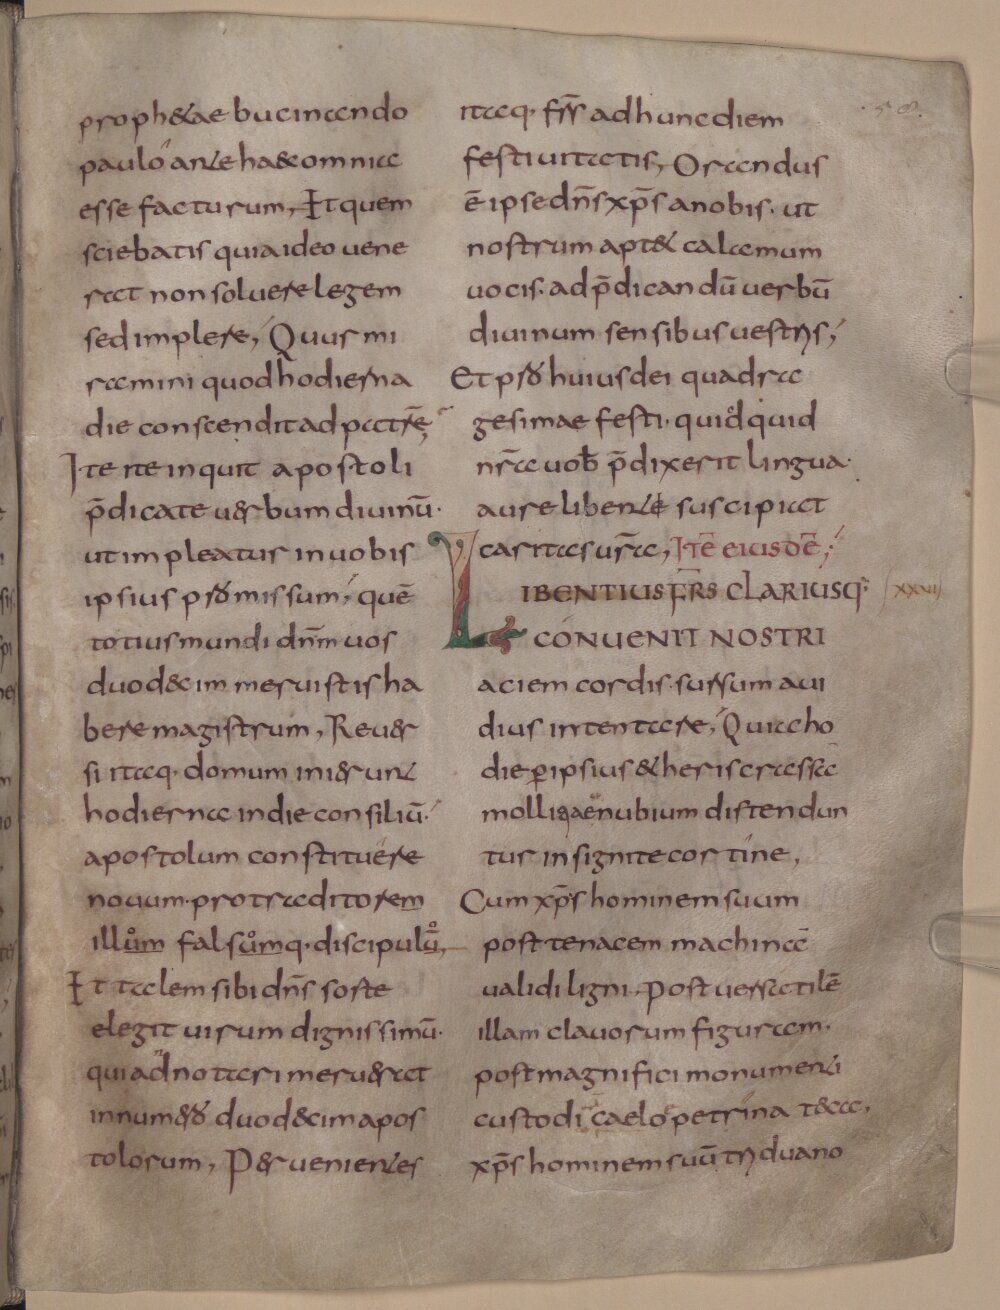 proph&ae bucinando
pauló ante hac omnia
esse facturum, Et quem
sciebatis quia ideo uene
rat non soluere legem
sed implere, Quur mi
ramini quod hodierna
die conscendit ad patrē,
Ite ite inquit apostoli
p̄dicate uerbum diuinū·
ut impleatur in uobis
ipsius promissum, quē
totius mundi dn̄m uos
duodecim meruistis ha
bere magistrum, Reuer
si itaq· domum inierunt
hodierna in die consiliū·
apostolum constituére
nouum· pro traditorem
illum falsumq· discipulū,
Et talem sibi dn̄s sorte
elegit uirum dignissimū·
qui adnotari meruerat
in numero duodecim apos
tolorum, Peruenientes
itaq· fr̄s ad hunc diem
festiuitatis, Orandus
ē ipse dn̄s xp̄s a nobis· ut
nostrum apt& calamum
uocis· ad p̄dicandū uerbū
diuinum sensibus uestris,
Et pro huius dei quadra
gesimae festi· quidquid
nr̄a uob̄ p̄dixerit lingua·
aure libente suscipiat
caritas ur̄a, Itē eiusdē,
LIBENTIUS FR̄S CLARIUSQ· XXVII
CONUENIT NOSTRI
aciem cordis· sursum aui
dius intentare, Quia ho
die p̱ ipsius &heris crassā
molliqae nubium disten dun
tur insignite cortine,
Cum xp̄s hominem suum
post tenacem machinā
ualidi ligni· Post uersatilē
illam clauorum figuram·
post magnifici monumenti
custodi caelo petrina t&ca,
xp̄s hominem suū triduano